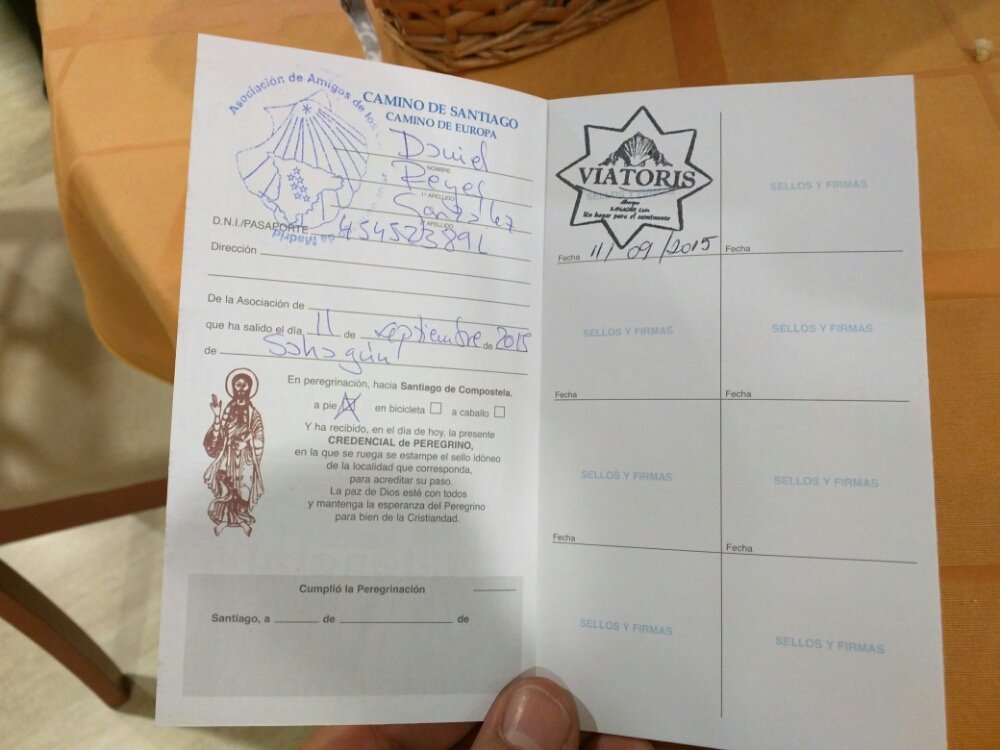 Asociación de Amigos de los
de Madrid
CAMINO DE SANTIAGO
CAMINO DE EUROPA
Daniel
NOMBRE
Reyes
1º APELLIDO
González
2º APELLIDO
D.N.I./PASAPORTE
Dirección
De la Asociación de
que ha salido el día 11 de septiembre de 2015
de Sahagún
En peregrinación, hacia Santiago de Compostela.
a pie en bicicleta a caballo
Y ha recibido, en el día de hoy, la presente
CREDENCIAL de PEREGRINO,
en la que se ruega se estampe el sello idóneo
de la localidad que corresponda,
para acreditar su paso.
La paz de Dios esté con todos
y mantenga la esperanza del Peregrino
para bien de la Cristiandad.
Cumplió la Peregrinación
Santiago, a de de
VIATORIS
Albergue
SAHAGÚN León
Un hogar para el caminante
Fecha 11/09/2015
SELLOS Y FIRMAS
Fecha
SELLOS Y FIRMAS
Fecha
SELLOS Y FIRMAS
Fecha
SELLOS Y FIRMAS
Fecha
SELLOS Y FIRMAS
Fecha
SELLOS Y FIRMAS
SELLOS Y FIRMAS